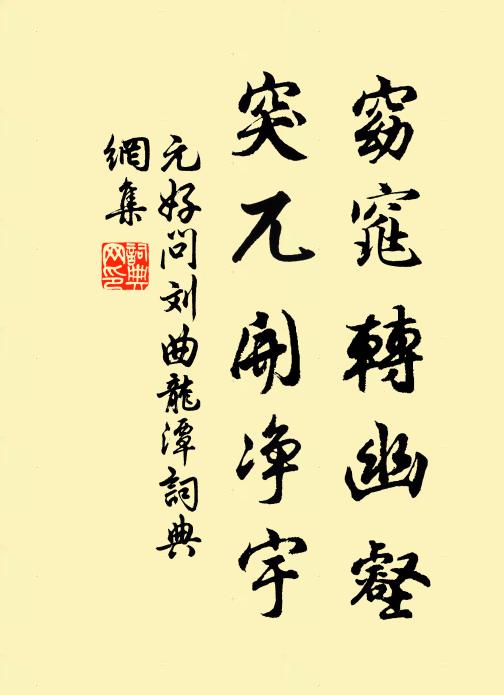 窈窕轉幽壑
突兀開净宇
元好问刘曲龍潭詞典
網集
詞典
网印